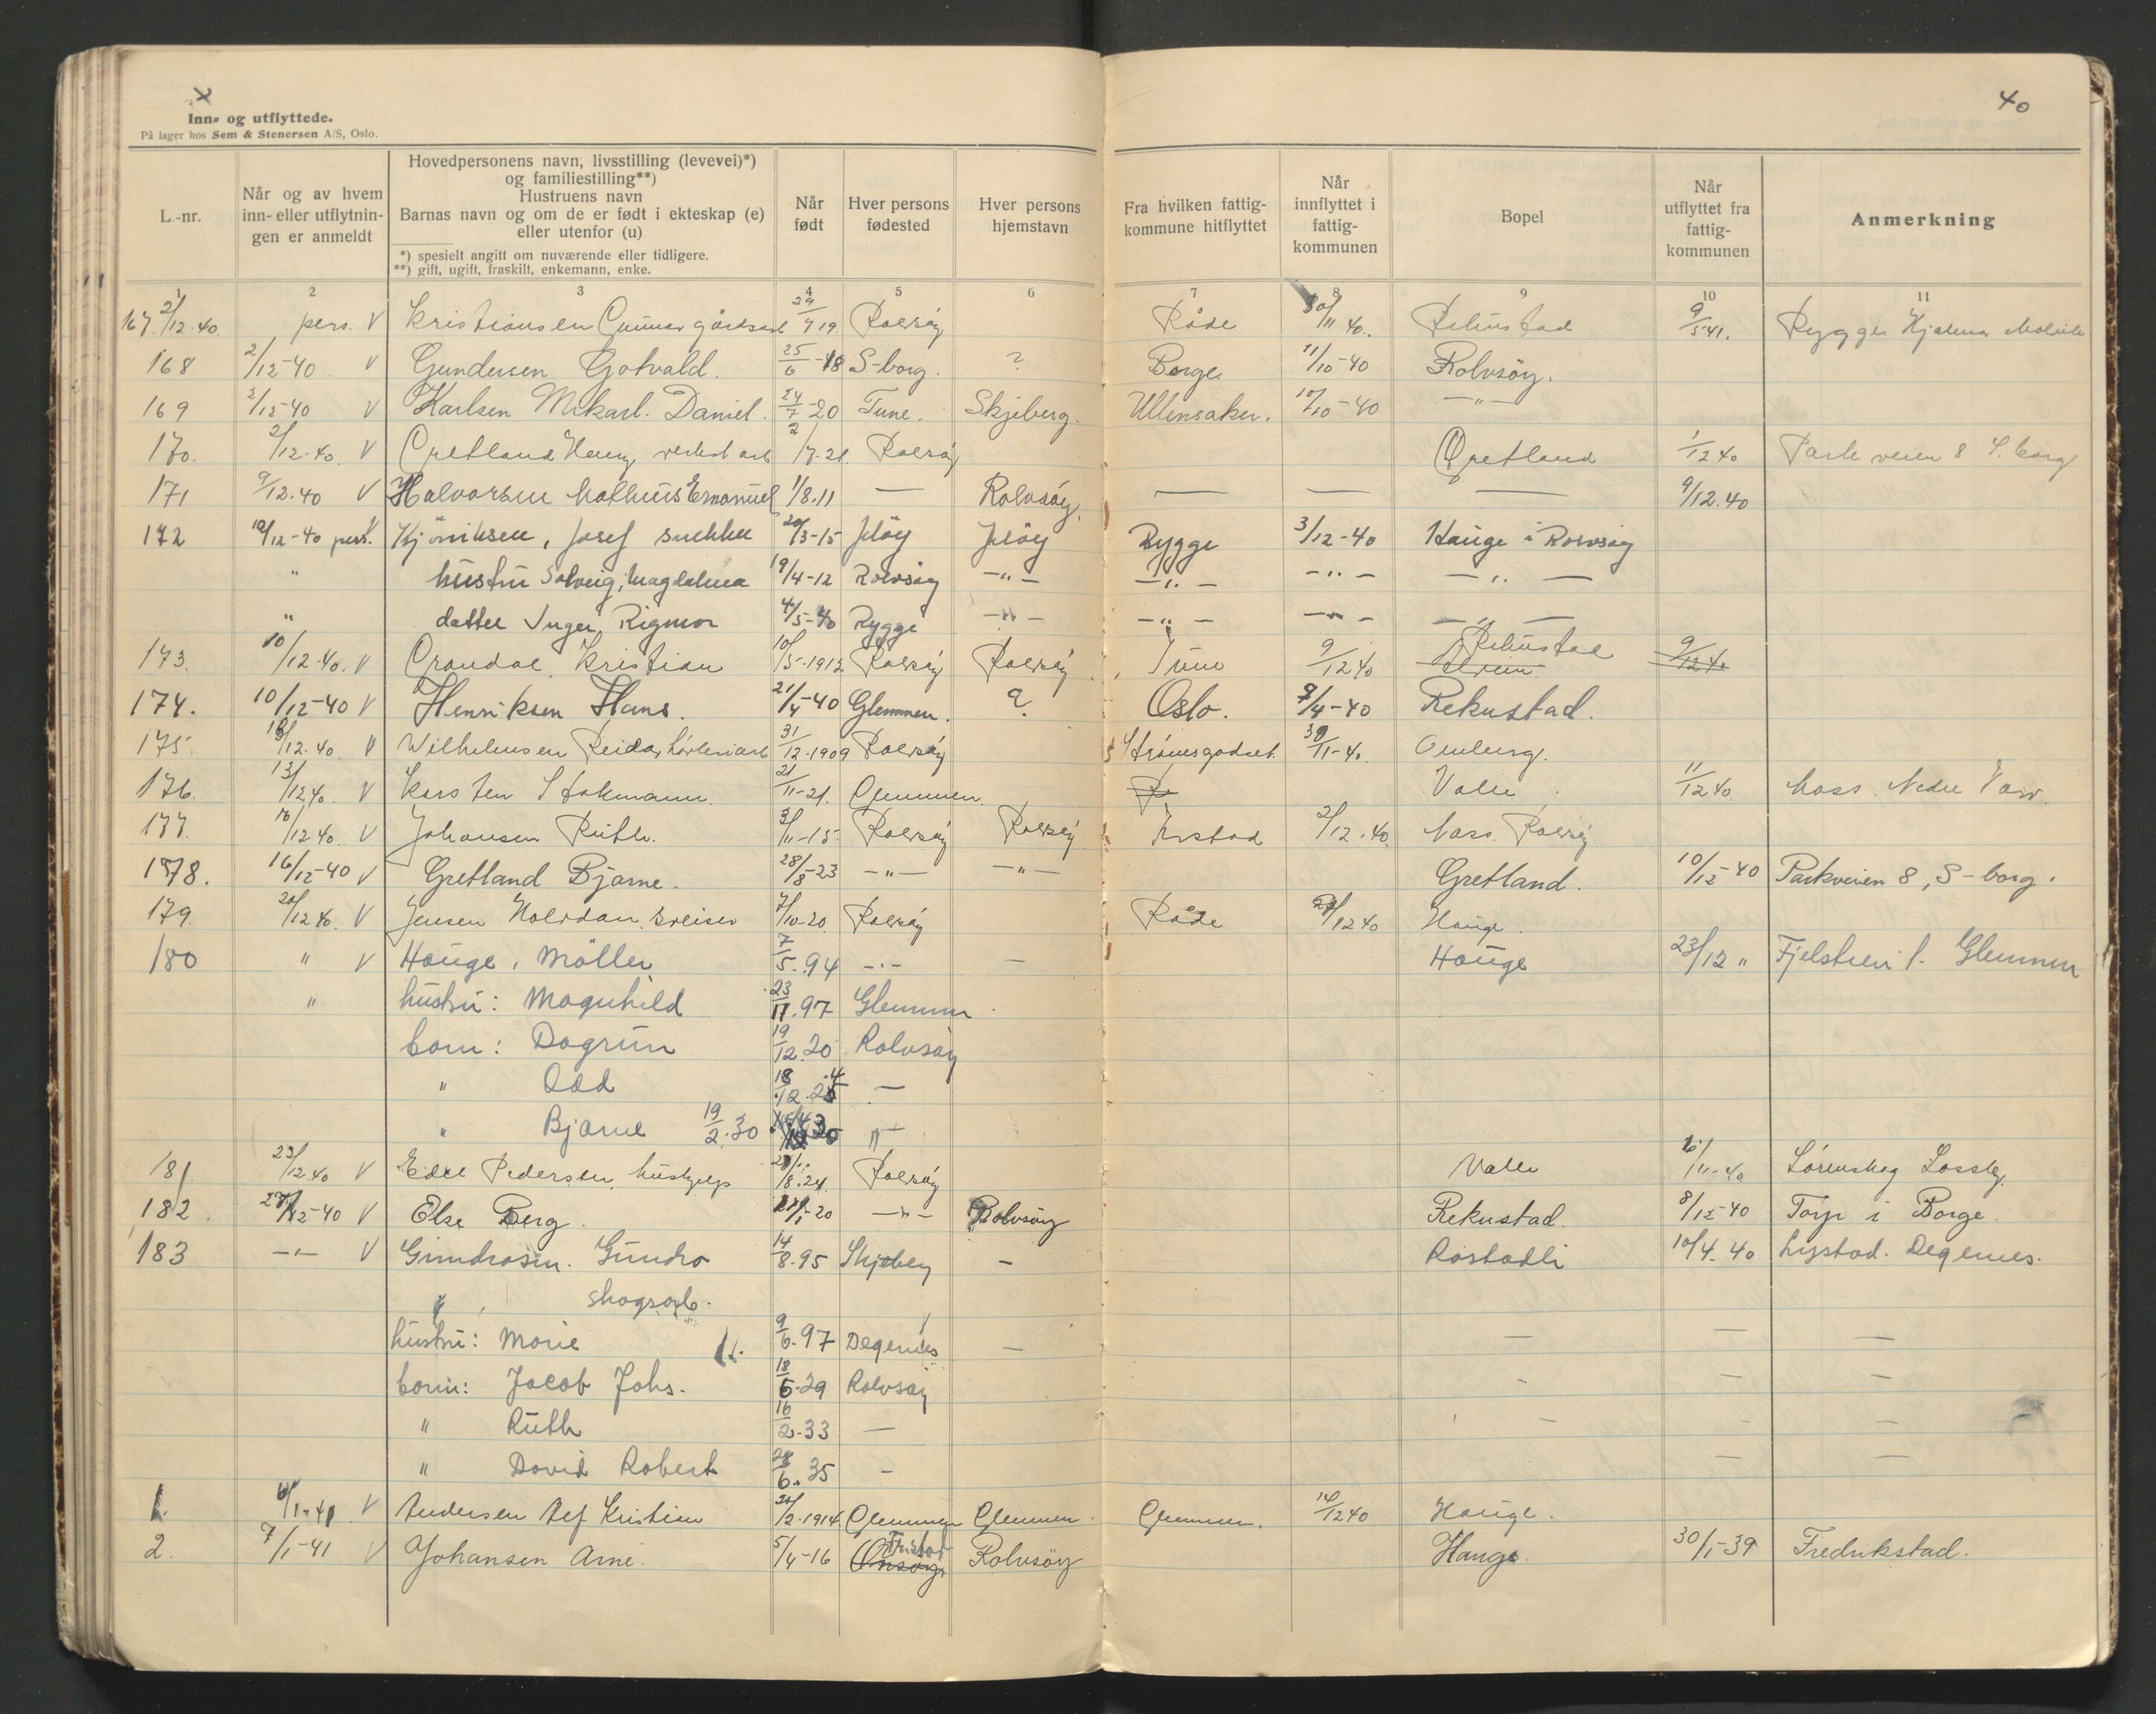 x
40
Inn- og utflyttede.
På lager hos Sem & Stenersen A/S, Oslo.
L.-nr.
Når og av hvem inn- eller utflytnin-gen er anmeldt
Hovedpersonens navn, livsstilling (levevei)*)
og familiestilling**)
Hustruens navn
Barnas navn og om de er født i ekteskap (e)
eller utenfor (u)
*) spesielt angitt om nuværende eller tidligere.
**) gift, ugift, fraskilt, enkemann, enke.
Når født
Hver persons fødested
Hver persons hjemstavn
Fra hvilken fattig-kommune hitflyttet
Når innflyttet i fattig-kommunen
Bopel
Når utflyttet fra fattig-kommunen
Anmerkning
1 2 3 4 5 6 7 8 9 10 11
167. 2/12.40. pers. V Kristiansen Gunnar 29/7 19. Rolvsøy Råde 30/11 40. Rekustad 9/5 41. Rygge Hjalmar
168 2/12-40 V Gundersen Gotvald. 25/6-18 S-borg. ? Borge 11/10-40 Rolvsøy.
169 2/12-40 V Karlsen Mikael. Daniel. 24/7-20 Tune. Skjeberg. Ullensaker. 10/10-40 -"-
170. 2/12.40. V Gretland Henry 2/7.21. Rolvsøy Gretland 1/12 40 Parkveien 8 S.borg
171 9/12.40 V Halvorsen Mathius Emanuel 1/8.11 — Rolvsøy. — — — 9/12.40
172 10/12-40 pers. Kjöniksen, Josef snekker 20/3-15 Jeløy Jeløy Rygge 3/12-40 Hauge i Rolvsøy
" hustru Solveig, Magdalena 19/4-12 Rolvsøy -"- -"- -"- -"-
" datter Inger Rigmor 4/5-40 Rygge -"- -"- -"- -"-
173. 10/12.40. V Kristian 10/5-1912 Rolvsøy Rolvsøy Tune 9/12 40 Rekustad 9/12 40
174. 10/12-40 V Henriksen Hans. 21/4-40 Glemmen. ? Oslo. 9/4-40 Rekustad.
175. 12.40. V Wilhelmsen Reidar 31/12.1909 Rolvsøy Strømsgodset 30/11-40. Omberg.
176. 13/12 40. V Karsten Stokmann. 21/11-21. Glemmen. Valle 11/12 40. Moss. Nedre
177. 16/12 40. V Johansen Ruth. 3/11-15 Rolvsøy Rolvsøy 2/12.40. Rolvsøy
178. 16/12-40 V Gretland Bjarne. 28/8-23 -"- -"- Gretland. 10/12-40 Parkveien 8, S-borg.
179. 20/12 40. V Jensen Halvdan. 7/10-20. Rolvsøy Råde 12 40 Hauge.
180 " V Hauge, Möller 7/5.94 -"- — Hauge 23/12 " Glemmen
" hustru: Magnhild 23/11.97 Glemmen
barn: Dagrun 19/12.20 Rolvsøy
" Odd 18/12.24 —
" Bjarne 19/2.30 "
181. 23/12.40 V Pedersen, hushjelp 8.24. Rolvsøy Valle 11-40 Lørenskog
182. 12-40 V Else Berg. 1-20 -"- Rolvsøy Rekustad. 8/12-40 Torp i Borge.
183 -"- V Gundrosen. Gundro 14/8.95 Skjeberg — Rostadli 10/4-40 Lystad. Degernes.
" skogsarb.
hustru: Marie 9/6.97 Degernes — — — —
barn: Jacob Johs. 18/5-29 Rolvsøy - — —
" Ruth 16/2-33 — - - -
" David Robert 28/6.35 - — —
1. 6/1-41 V Andersen Kristian 2.1914. Glemmen Glemmen. Glemmen. 14/12 40 Hauge.
2. 7/1-41 V Johansen Arne. 5/4-16 Onsøy Rolvsøy Hauge. 30/1-39 Fredrikstad.